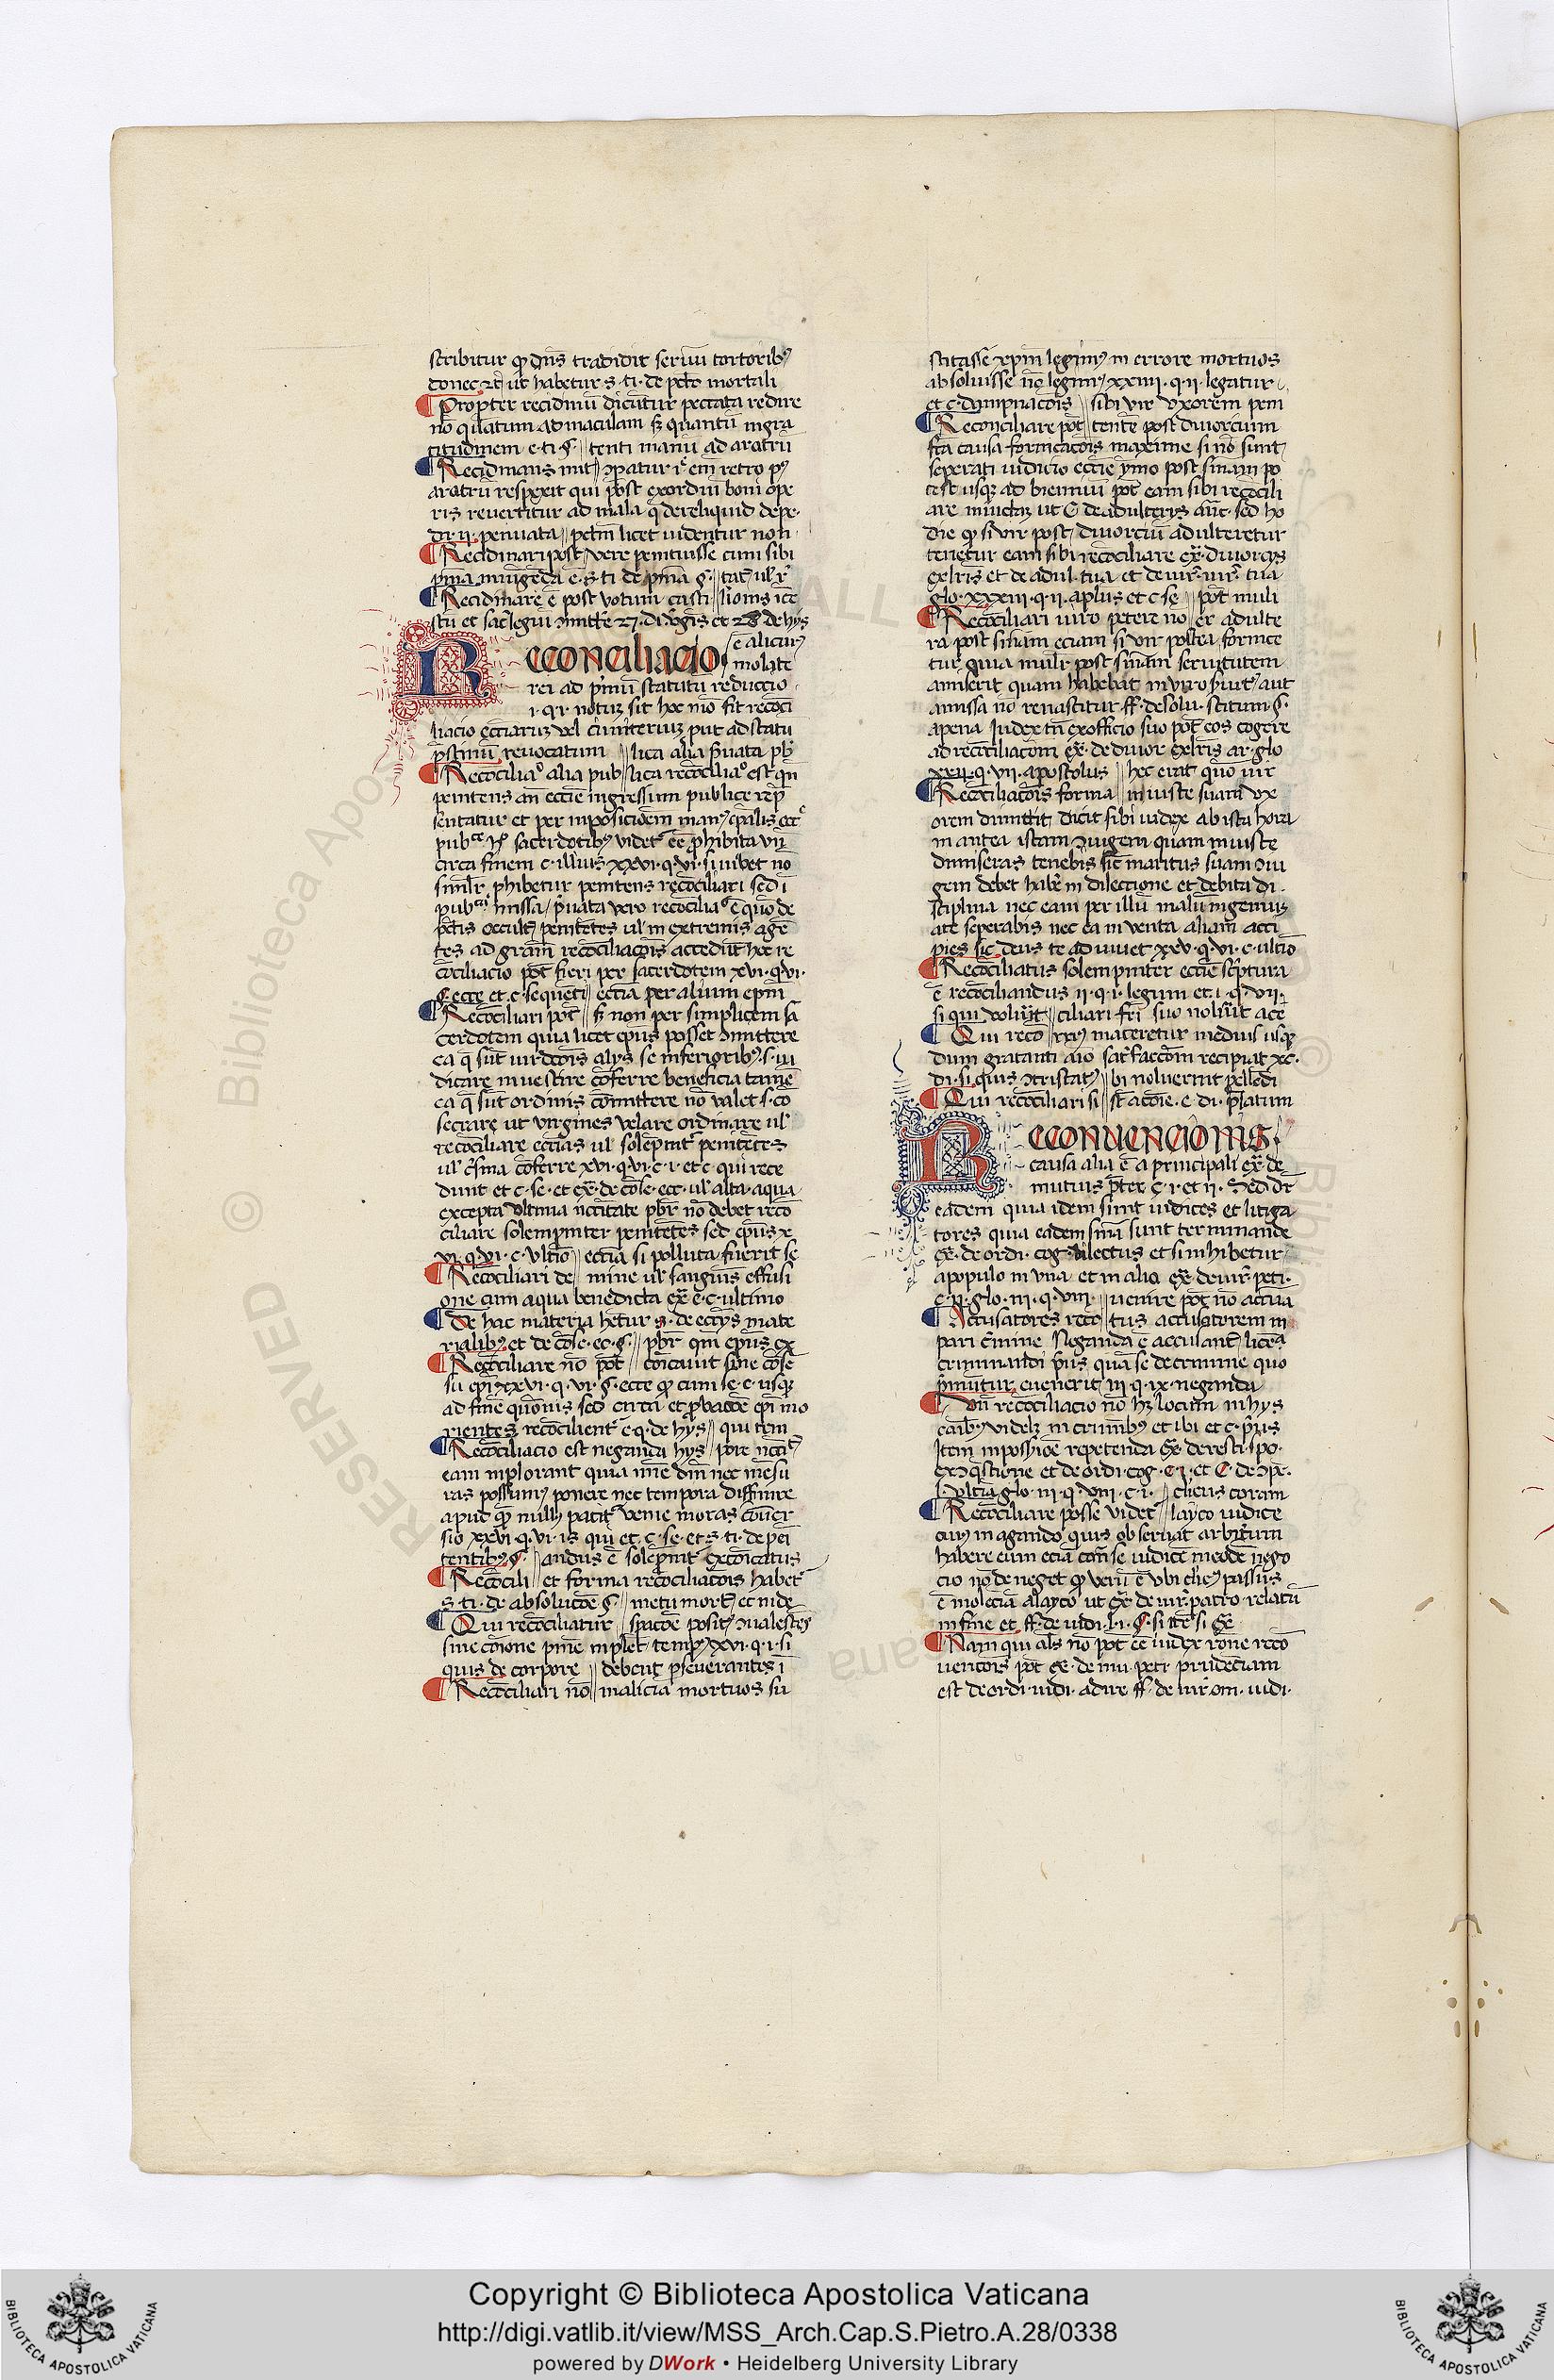 scribitur ꝙ dn̄s tradidit seruū tortorib⁹
donec ⁊c̄ ut habetur s· ti· de pct̄o mortali
Propter recidiuū dicūtur peccata redire
nō qūatum ad maculam sꝫ quantū ingra
titudinem e· ti· §· tenti manū ad aratrū
Recidiuans mit
aratrū respexit qui post exordiū boni ope
ris reuertitur ad mala q̄ dereliquid depe·
di· ii· penuata pctm̄ licet uidentur non
Recidiuari post vere penituisse cum sibi
Recidiuare ē post votum casti
RECONCILIACIO ē alicui⁹
uiolate
rei ad p͛mū statutū reduccio
i· q· i· notuꝫ sit hoc mō fit recōci
liacio eccīaruꝫ vel cimiteriuꝫ put ad statū
pr̄stinū reuocatum lica alia p͛uata pb͛
Recōcilia° alia pub lica recōcilia° est qn̄
penitens an̄ ecc̄ie ingressum publice repr̄
sentatur et per inposicioēm man⁹ ep̄alis
sacerdotib⁹ videt͛ ēe phibita
circa finem c· illius xxvi· q· vi· si iubet nō
simil͛r phibetur penitens recōciliari sed ī
pub missa p͛uata vero recōcilia° ē quō de
pct̄is occult͛ penitētes ul͛ in extremis agē
tes ad gram̄ recōciliacōis accedūt hec re
cōciliacio pōt fieri per sacerdotem xvi· q· vi·
§· ecce et· c· sequēti eccīa per alium ep̄m
Recōciliari pōt sꝫ non per simplicem sa
cerdotem quia licet ep̄us posset ɔmittere
ea q̄ sūt iurdc̄ois alys se inferiorib⁹· s· iu
dicare inuestire cōferre beneficia tamē
ea q̄ sūt ordinis cōmittere nō valet s· cō
secrare ut virgines velare ordinare ul͛
recōciliare eccīas ul͛ solepnit͛ penitētes
ul͛ c͛sma cōferre xvi· q· vi· c· i· et c· qui rece
dunt et c· se· et ex̄· de cōse· ecc· ul͛ alta· aqua·
excepta ultima nccītate pbr͛ nō debet recō
ciliare solempniter penitētes sed ep̄us x
vi· q· vi· c· ultīo eccīa si polluta fuerit se
Recōciliari de mine ul͛ sanguis effusi
one cum aqua benedicta ex̄· e· c· ultimo
De hac materia hētur s· de eccīys mate
rialib⁹ et de cōse· ec· §· pbr͛ qm̄ ep̄us ex
Recōciliare nō pōt cōicauit sine cōse
su ep̄i xxvi· q· vi· §· ecce ꝙ cum se· c· usqꝫ
ad finē
rientes recōcilient͛ e· q· de hys qui tem
Recōciliacio est neganda hys pore nccīt͛
eam inplorant quia
ras possum⁹ ponere nec tempora diffinire
apud quē null patit͛ venie moras cōuer
sio xxvi· q· vi· is qui et· c· se· et s· ti· de pei
tentib⁹ §· andus ē solepnit͛ excōicatus
Recōcili et forma recōciliacōis habet͛
s· ti· de absolucōe §· metu mort͛ et inde
Qui recōciliatur spacōe posit͛ ɔualestēs
sine cōione pnīe inplēt temp⁹ xxvi· q· i· si
quis de corpore debent pseuerantes ī
Recōciliari nō malicia mortuos su
scitasse xp̄m legim⁹ in errore mortuos
absoluisse nō legim⁹ xxiiii· q· ii· legatur·
et c· dampnacōis sibi vir uxorem peni
Reconciliare pōt tente post diuorcium
fc̄a causa fornicacōis maxime si nō sunt
seperati iudicio ecc̄ie ymo post sniam po
test usqꝫ ad bienniū pōt eam sibi recōcili
are ut c· de adulterys sed ho
die ꝙ si vir post diuorciū adulteretur
tenetur eam sibi recōciliare ex̄· diuorcys
ex lris et de adul· tua et de iur· iur· tua
glo· xxxiii· q· ii· aplus et c· se pōt muli
Recōciliari viro petere no er adulte
ra post sniam eciam si vir postea fornice
tur quia mul͛r post sniam seruitutem
amiserit quam habebat in viro aut
amissa nō renascitur ff· de solu· scitum §·
apena iudex tn̄ ex officio suo pōt eos cogere
ad recōciliacōm ex̄· de diuor ex lris ar· glo
xxii· q· vii· apostolus hec erat quō vir
Recōciliacōis forma iniuste suam ux
orem dimittit dicit sibi iudex ab ista hora
in antea istam ɔiugem quam iniuste
dimiseras tenebis sic͛ maritus suam ɔiu
gem debet hab͛e in dileccione et debita di
sciplina nec eam per illū malū ingeniuꝫ
a te seperabis nec ea viuenta aliam acci
pies sic deus te adiuuet xxv· q· vi· c· ultīo
Recōciliatus solempniter ecc̄ie sc͛ptura
ē recōciliandus ii· q· i· legum et· i· q· vii·
si qui uolūt ciliari fr̄i suo nolūit ace
Qui recō maceretur inedius usqꝫ
dum gratanti aīo satīffaccōm recipiat xc·
di· si quis ɔtristat⁹ bi noluerint pellēdi
Qui recōciliari si st̄ acōie· e· di· p͛latum
RECONUENCIONIS
causa alia ē a principali ex̄· de
mutuis p͛ter c· i· et ii· Sed dr̄
eadem quia idem sunt iudices et litiga
tores quia eadem snīa sunt terminande
ex̄· de ordi· cog· dilectus et si inhibetur
a populo in una et in alia ex̄· de iur· peti·
c· ii· glo· iii· q· viii· uenire pōt nō actua
Accusatores recō tus accusatorem in
pari c͛mine Neganda ē accusant͛ licēa
criminandi p͛us quā se de crimine quo
p͛mūtur euenerit iii· q· ix· neganda
Vn̄ recōciliacio nō hꝫ locum in hys
caus͛ videlꝫ in crimib⁹ et ibi et c· p͛us
Item inposs͛ioē repetenda ex̄· de resti· spo·
ex ɔq̄stione et de ordi· cog· c· i· et c· de ɔpe·
l· ultīa glo· iii· q· viii· c· i· clicus coram
Recōciliare posse videt͛ layco iudice
cui⁹ in agando quis obseruat arbit͛um
habere eum eciā cont͛ se iudicē in eodē nego
cio nō de neget ꝙ verū ē ubi clic⁹ passus
ē molestiā a layco ut ex̄· de iur· patro· relatū
in fine et ff· de iudi· l· i· §· si ex̄
Nam qui als̄ nō pōt ēe iudex rōne recō
uencōis pōt ex̄· de mu· peti· prudēciam
est de ordi· iudi· adire ff· de iur· om· iudi·
© Biblioteca Apos
RESERVED
ALL
Copyright © Biblioteca Apostolica Vaticana
http://digi.vatlib.it/view/MSS_Arch.Cap.S.Pietro.A.28/0338
powered by DWork • Heidelberg University Library
BIBLIOTECA APOSTOLICA VATICANA
BIBLIOTECA APOSTOLICA VATICANA